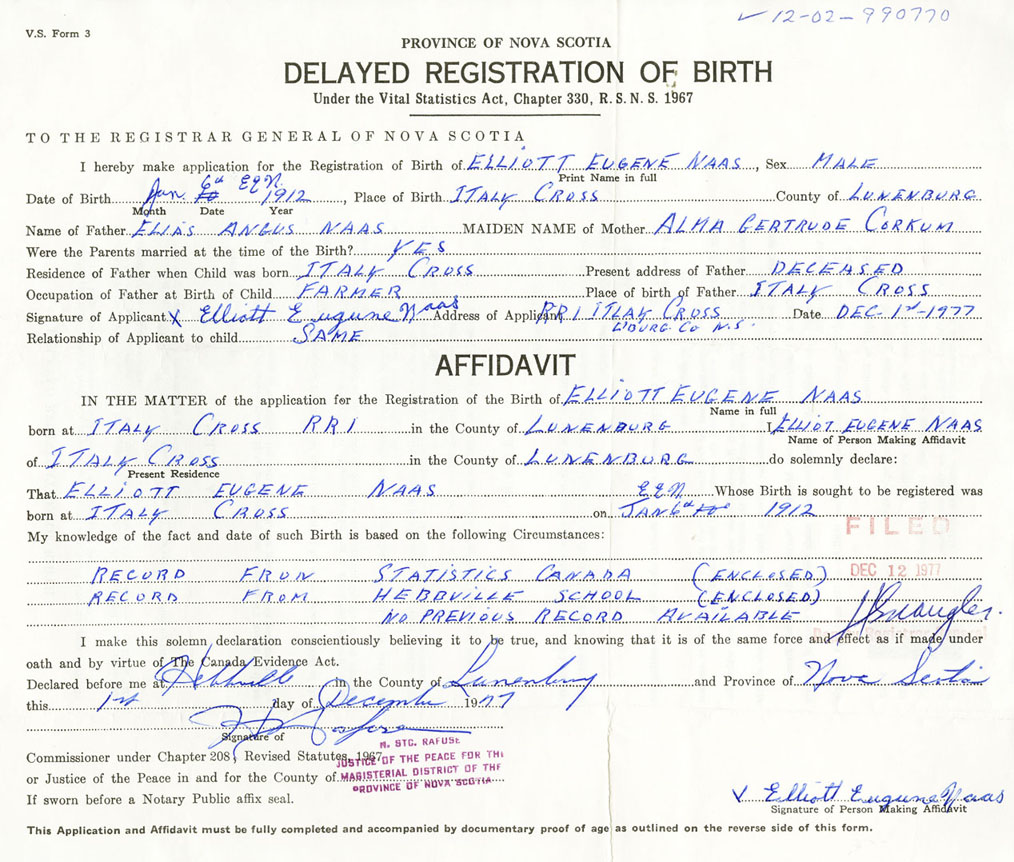 ✓ 12-02-990770
V.S. Form 3
PROVINCE OF NOVA SCOTIA
DELAYED REGISTRATION OF BIRTH
Under the Vital Statistics Act, Chapter 330, R.S.N.S. 1967
TO THE REGISTRAR GENERAL OF NOVA SCOTIA
I hereby make application for the Registration of Birth of ELLIOTT EUGENE NAAS, Sex MALE
Print Name in full
6th EEN.
Date of Birth Jan. 1912, Place of Birth ITALY CROSS County of LUNENBURG
Month Date Year
Name of Father ELIAS ANGUS NAAS MAIDEN NAME of Mother ALMA GERTRUDE CORKUM
Were the Parents married at the time of the Birth? YES
Residence of Father when Child was born ITALY CROSS Present address of Father DECEASED
Occupation of Father at Birth of Child FARMER Place of birth of Father ITALY CROSS
Signature of Applicant X Elliott Eugune Naas Address of Applicant RR1 ITLAY CROSS Date DEC. 1st-1977
L'BURG CO N.S.
Relationship of Applicant to child SAME
AFFIDAVIT
IN THE MATTER of the application for the Registration of the Birth of ELLIOTT EUGENE NAAS
Name in full
born at ITALY CROSS RR1 in the County of LUNENBURG I ELLIOT EUGENE NAAS
Name of Person Making Affidavit
of ITALY CROSS in the County of LUNENBURG do solemnly declare:
Present Residence
That ELLIOTT EUGENE NAAS EEN Whose Birth is sought to be registered was
born at ITALY CROSS on JAN 6th 1912
FILED
My knowledge of the fact and date of such Birth is based on the following Circumstances:
RECORD FROM STATISTICS CANADA (ENCLOSED) DEC 12 1977
RECORD FROM HEBBVILLE SCHOOL (ENCLOSED)
NO PREVIOUS RECORD AVAILABLE
I make this solemn declaration conscientiously believing it to be true, and knowing that it is of the same force and effect as if made under
oath and by virtue of The Canada Evidence Act.
Declared before me at Hebbville in the County of Lunenburg and Province of Nova Scotia
this 1st day of December 1977
Signature of
Commissioner under Chapter 208, Revised Statutes, 1967
or Justice of the Peace in and for the County of
If sworn before a Notary Public affix seal.
STC. RAFUSE
JUSTICE OF THE PEACE FOR THE
MAGISTERIAL DISTRICT OF THE
PROVINCE OF NOVA SCOTIA
X Elliott Eugune Naas
Signature of Person Making Affidavit
This Application and Affidavit must be fully completed and accompanied by documentary proof of age as outlined on the reverse side of this form.